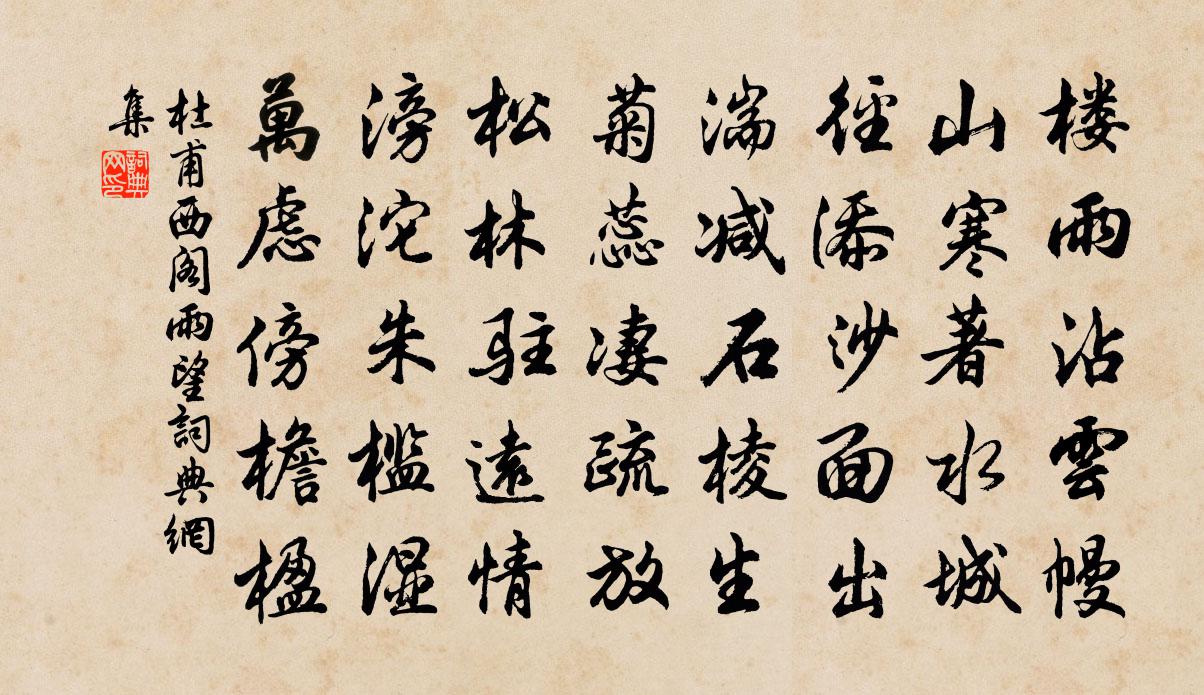 楼雨沾雲幔
山寒著水城
徑添沙面出
湍减石棱生
菊蕊凄疏放
松林駐遠情
滂沱朱槛湿
萬慮傍檐楹
杜甫西阁雨望詞典網
集
詞典网印